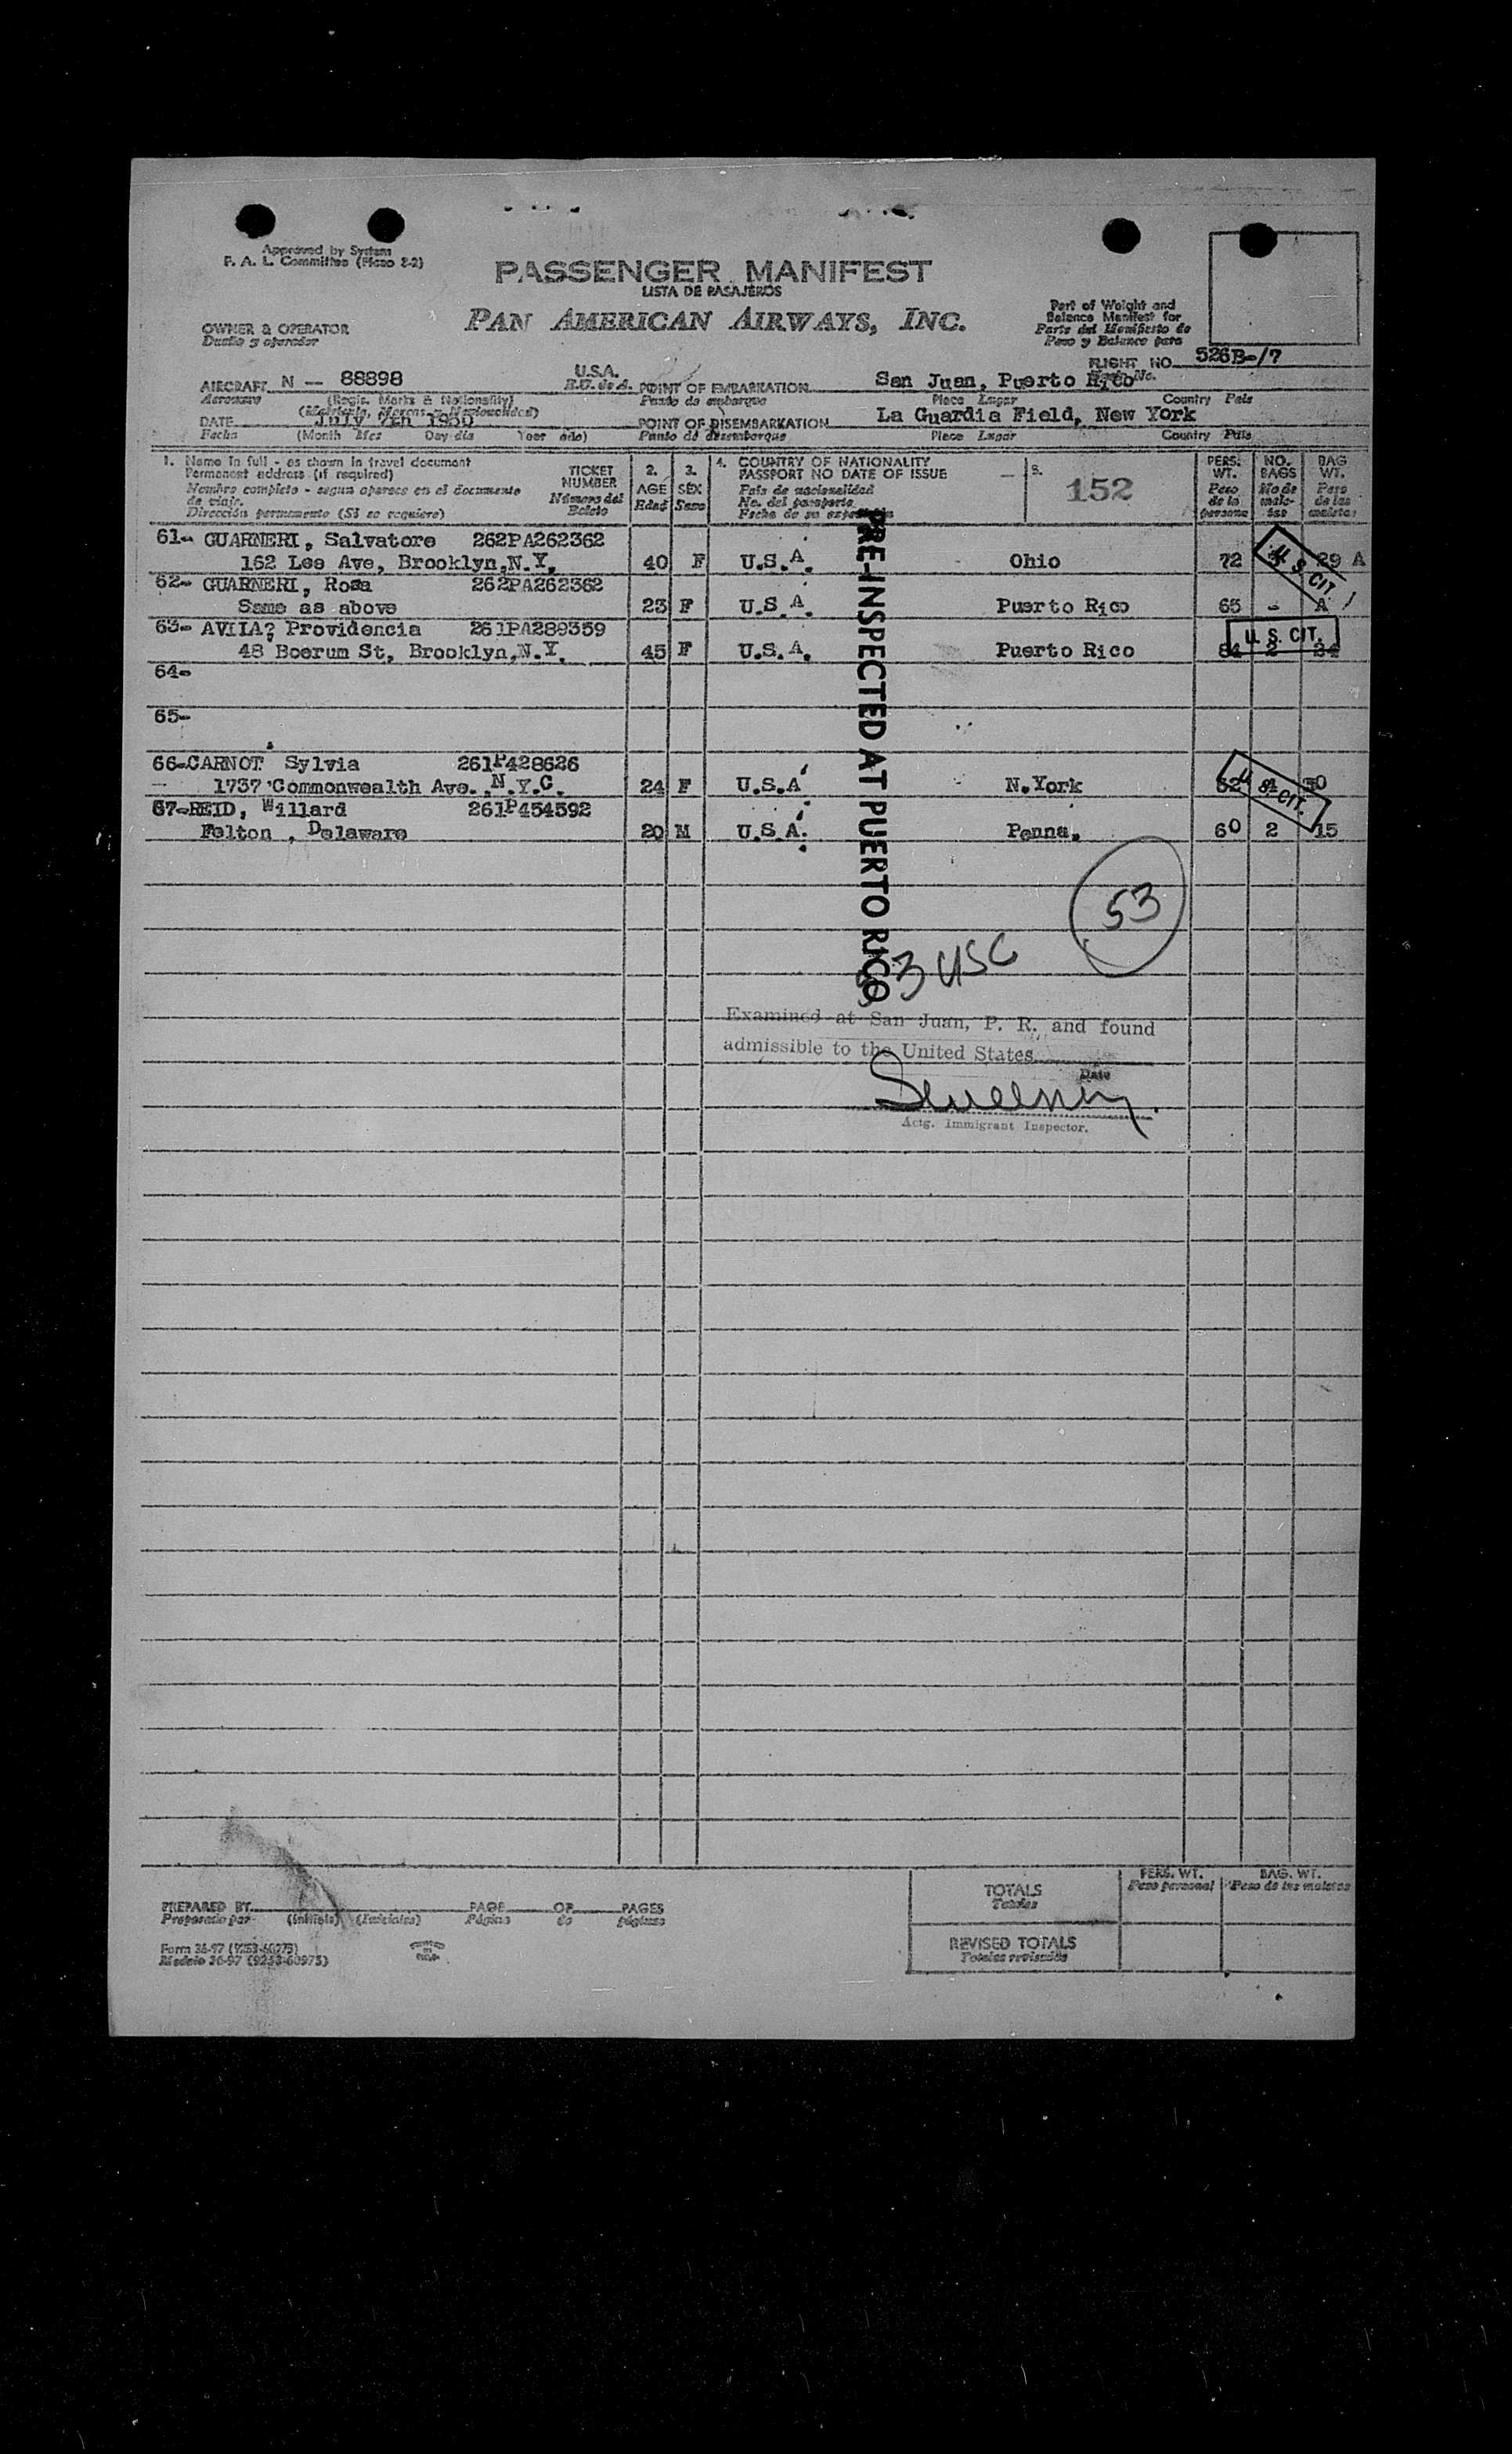 Approved by System
F. A. L. Committee (Piezo 2-2)
PASSENGER MANIFEST
LISTA DE PASAJEROS
PAN AMERICAN AIRWAYS, INC.
OWNER & OPERATOR
Dueño y operador
Part of Weight and
Balance Manifest for
Parte del Manifiesto de
Peso y Balance para
FLIGHT NO. 526B-/7
AIRCRAFT N — 88898 U.S.A. POINT OF EMBARKATION San Juan, Puerto Rico
Aeronave (Regis. Marks & Nationality) E.U. de A. Punto de embarque Place Lugar Country País
DATE July 7th 1950 POINT OF DISEMBARKATION La Guardia Field, New York
Fecha (Month Mes Day día Year año) Punto de desembarque Place Lugar Country País
1. Name in full - as shown in travel document
Permanent address (if required)
Nombre completo - segun aparece en el documento
de viaje.
Dirección permanente (Si se requiere)
TICKET
NUMBER
Número del
Boleto
2.
AGE
Edad
3.
SEX
Sexo
4. COUNTRY OF NATIONALITY
PASSPORT NO DATE OF ISSUE
País de nacionalidad
No. del pasaporte
Fecha de su
5.
152
PERS.
WT.
Peso
de la
persona
NO.
BAGS
No de
male-
tas
BAG
WT.
Peso
de las
maletas
61- GUARNERI, Salvatore 262PA262362
162 Lee Ave, Brooklyn,N.Y. 40 F U.S.A. Ohio 72 29 A
U S CIT
62- GUARNERI, Rosa 262PA262362
Same as above 23 F U.S.A. Puerto Rico 65 - A
63- AVILA? Providencia 261PA289359
48 Boerum St, Brooklyn,N.Y. 45 F U.S.A. Puerto Rico 84 2 34
U. S. CIT.
64-
65-
66-CARNOT Sylvia 261P428626
1737 Commonwealth Ave. N.Y.C. 24 F U.S.A N.York 52 30
U S CIT.
67-REID, Willard 261P454592
Felton , Delaware 20 M U.S.A. Penna. 60 2 15
PRE-INSPECTED AT PUERTO RICO
53
3 USC
Examined at San Juan, P. R. and found
admissible to the United States
Date
Sweeney
Actg. Immigrant Inspector.
PREPARED BY PAGE OF PAGES
Preparado por (Initials) (Iniciales) Página de páginas
Form 36-97 (9253-60975)
Modelo 36-97 (9253-60975)
TOTALS
Totales
PERS. WT.
Peso personal
BAG. WT.
Peso de las maletas
REVISED TOTALS
Totales revisados